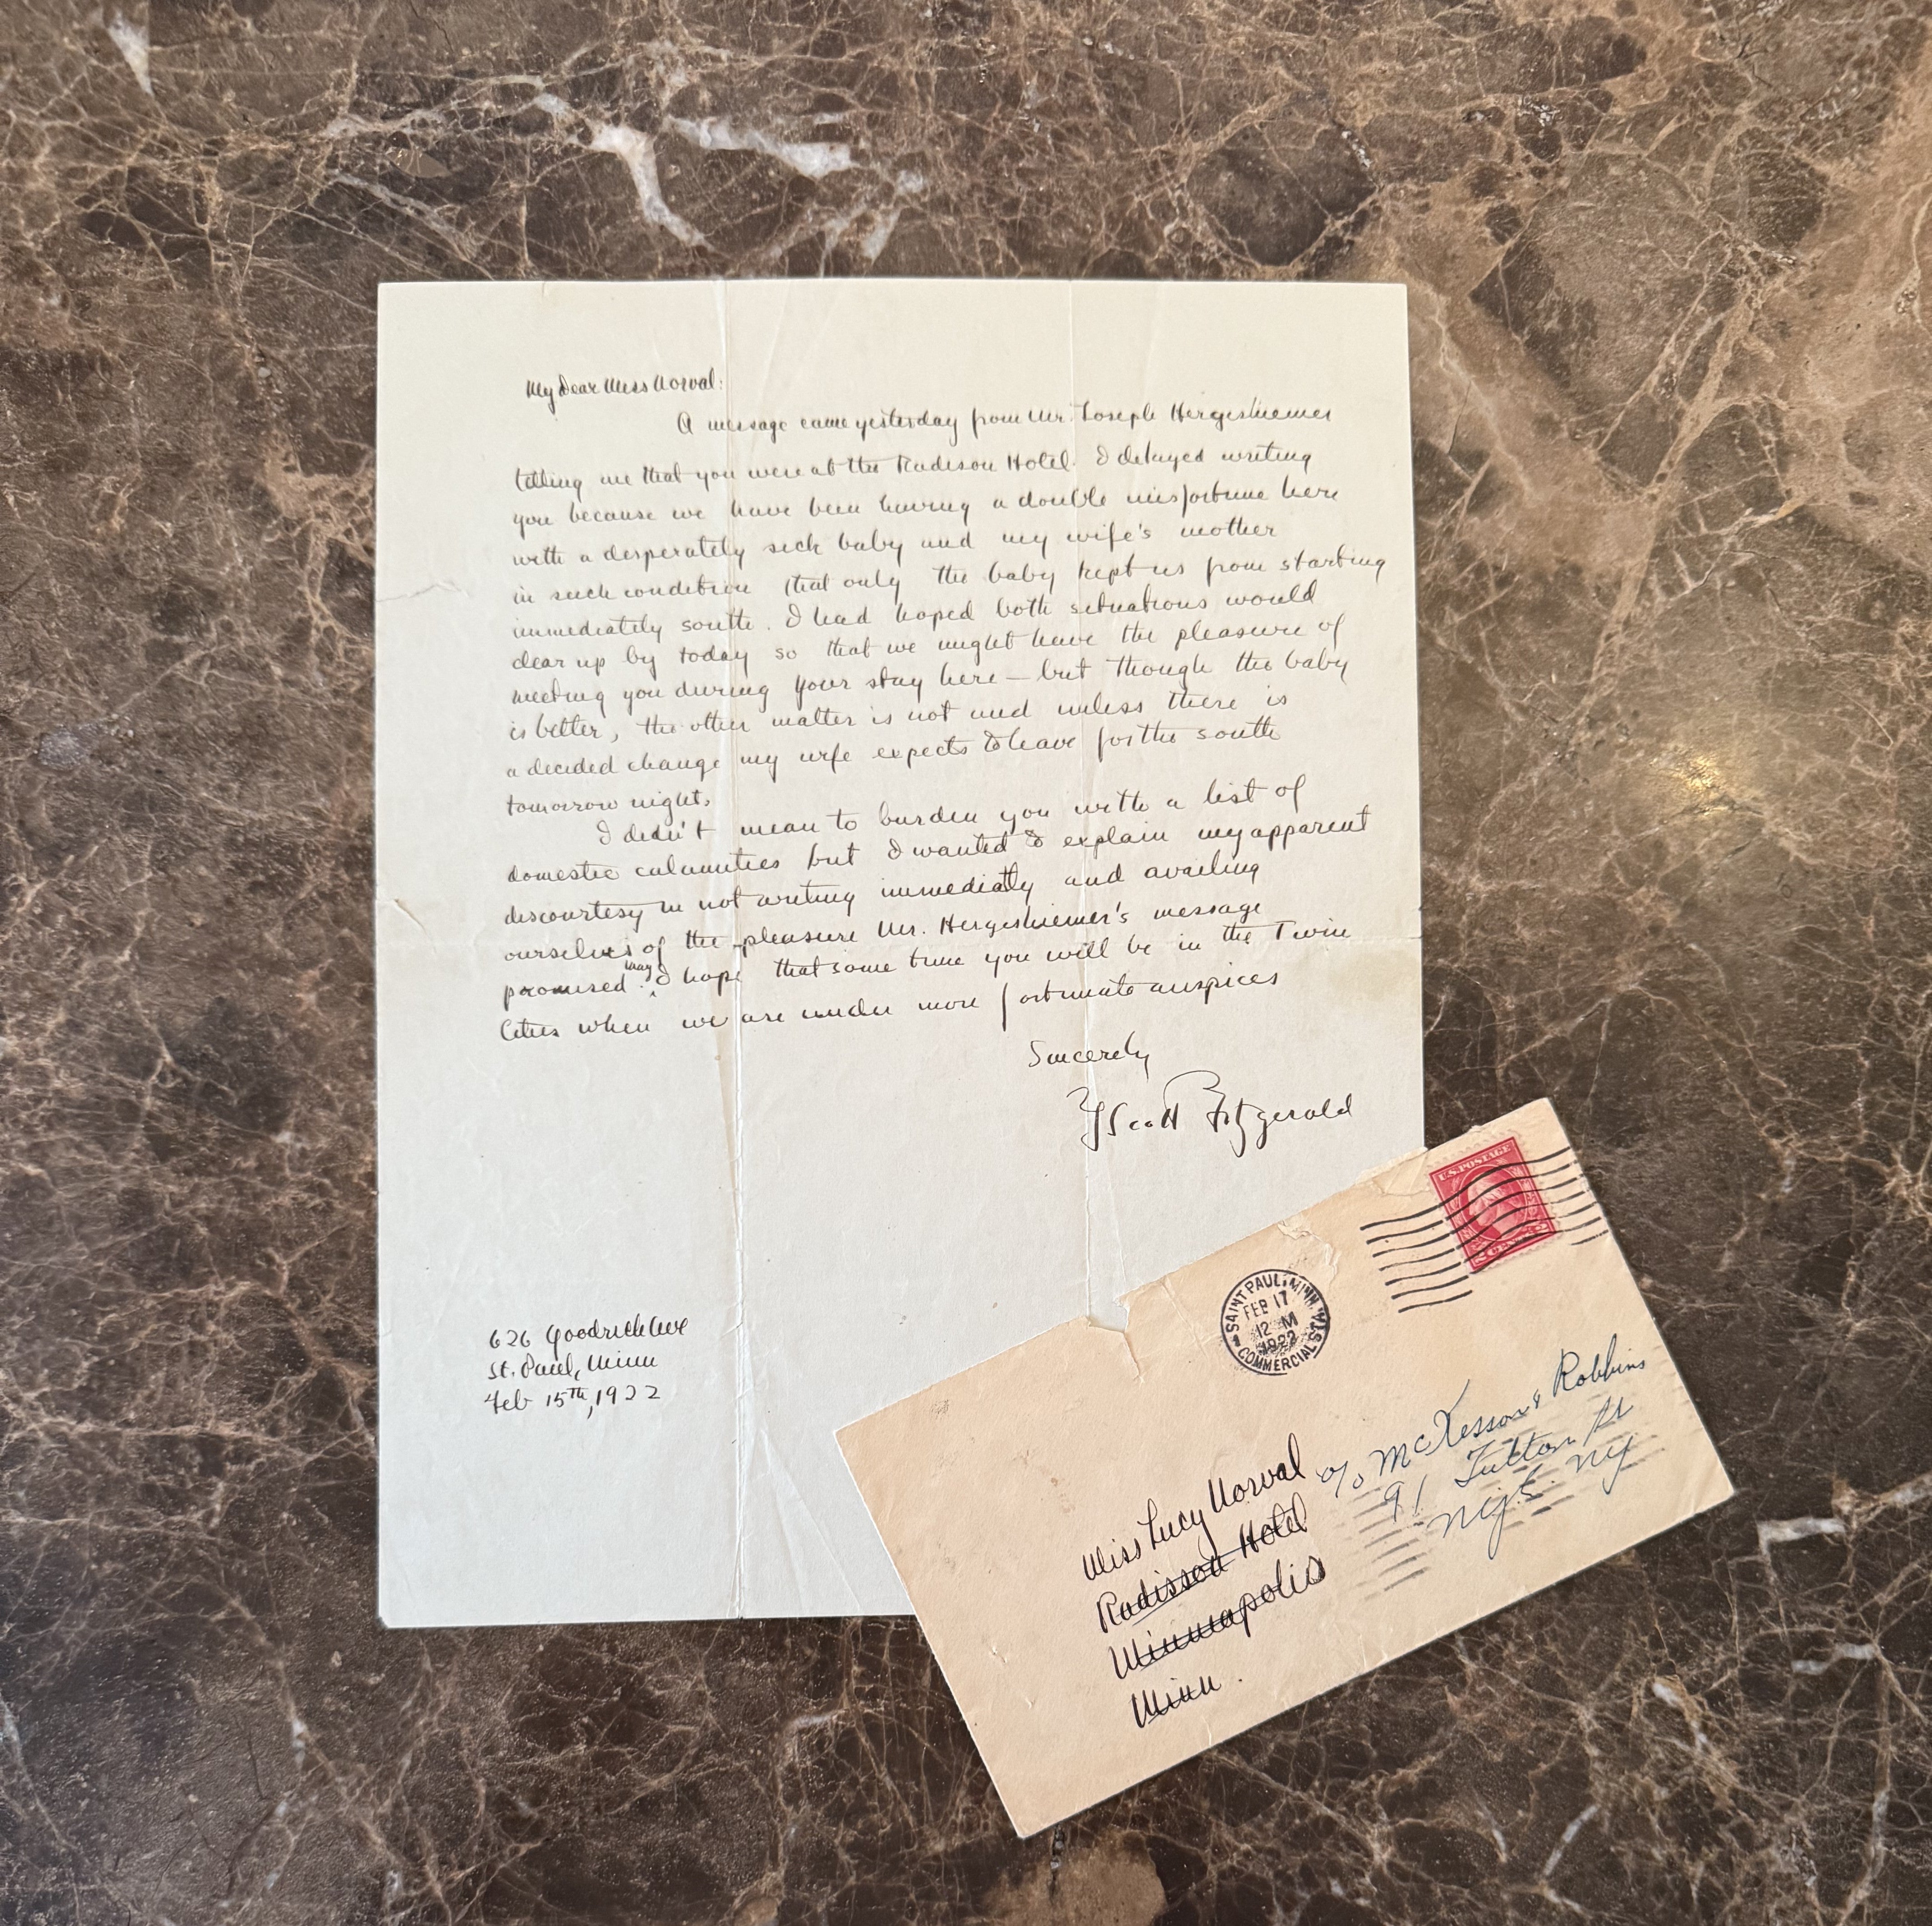 My Dear Miss Norval:
A message came yesterday from Mr. Joseph Hergeshiemer
telling me that you were at the Radison Hotel. I delayed writing
you because we have been having a double misfortune here
with a desperately sick baby and my wife's mother
in such condition that only the baby kept us from starting
immediately south. I had hoped both situations would
clear up by today so that we might have the pleasure of
meeting you during your stay here — but though the baby
is better, the other matter is not and unless there is
a decided change my wife expects to leave for the south
tomorrow night.
I didn't mean to burden you with a list of
domestic calamities but I wanted to explain my apparent
discourtesy in not writing immediatly and availing
ourselves of the pleasure Mr. Hergeshiemer's message
promised. May I hope that some time you will be in the Twin
Cities when we are under more fortunate auspices
Sincerely
F Scott Fitzgerald
626 Goodrich Ave
St. Paul, Minn
Feb 15th, 1922
U.S. POSTAGE
2 CENTS 2
SAINT PAUL, MINN.
FEB 17
12 M
1922
COMMERCIAL STA.
Miss Lucy Norval
Radisson Hotel
Minneapolis
Minn.
c/o McKesson & Robbins
91 Fulton St
NYC. NY